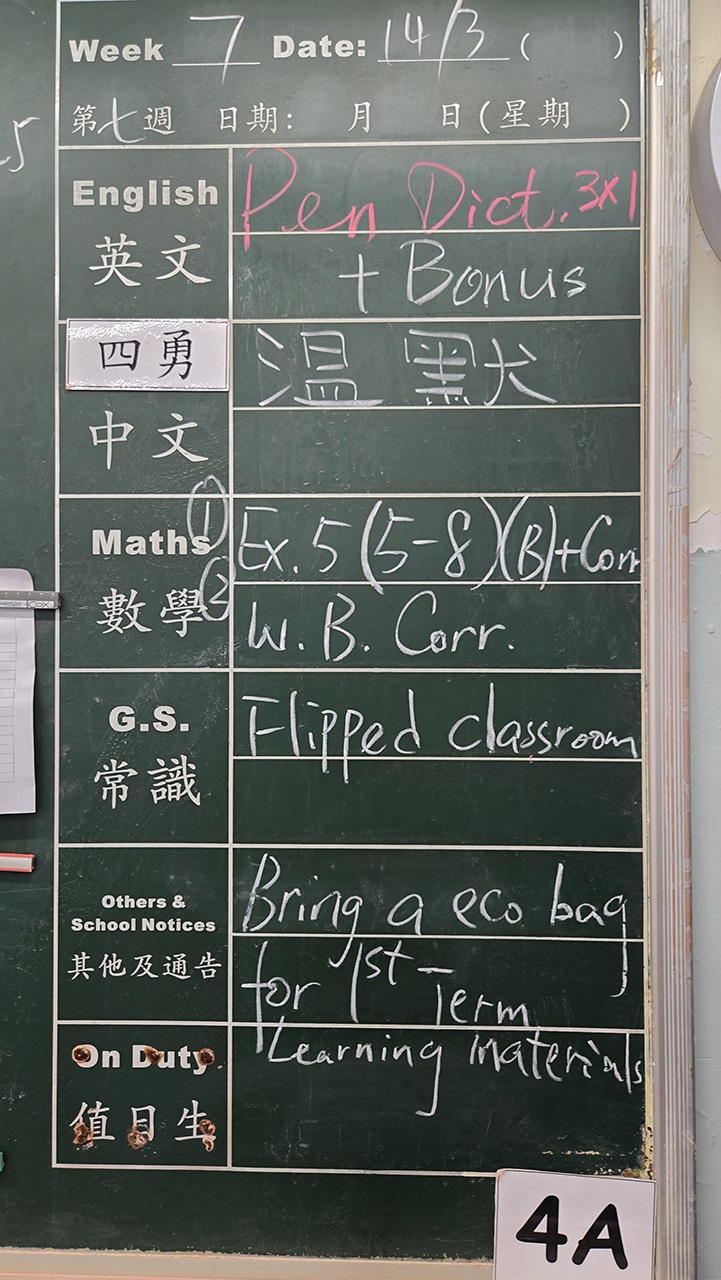 Week 7 Date: 14/3 ( )
第七週 日期: 月 日(星期 )
English
英文
Pen Dict. 3x1
+ Bonus
四勇
中文
温 默
Maths
數學
① Ex. 5 (5-8)(B)+Corr
② W. B. Corr.
G.S.
常識
Flipped classroom
Others &
School Notices
其他及通告
Bring a eco bag
for 1st Term
Learning materials
On Duty
值日生
4A